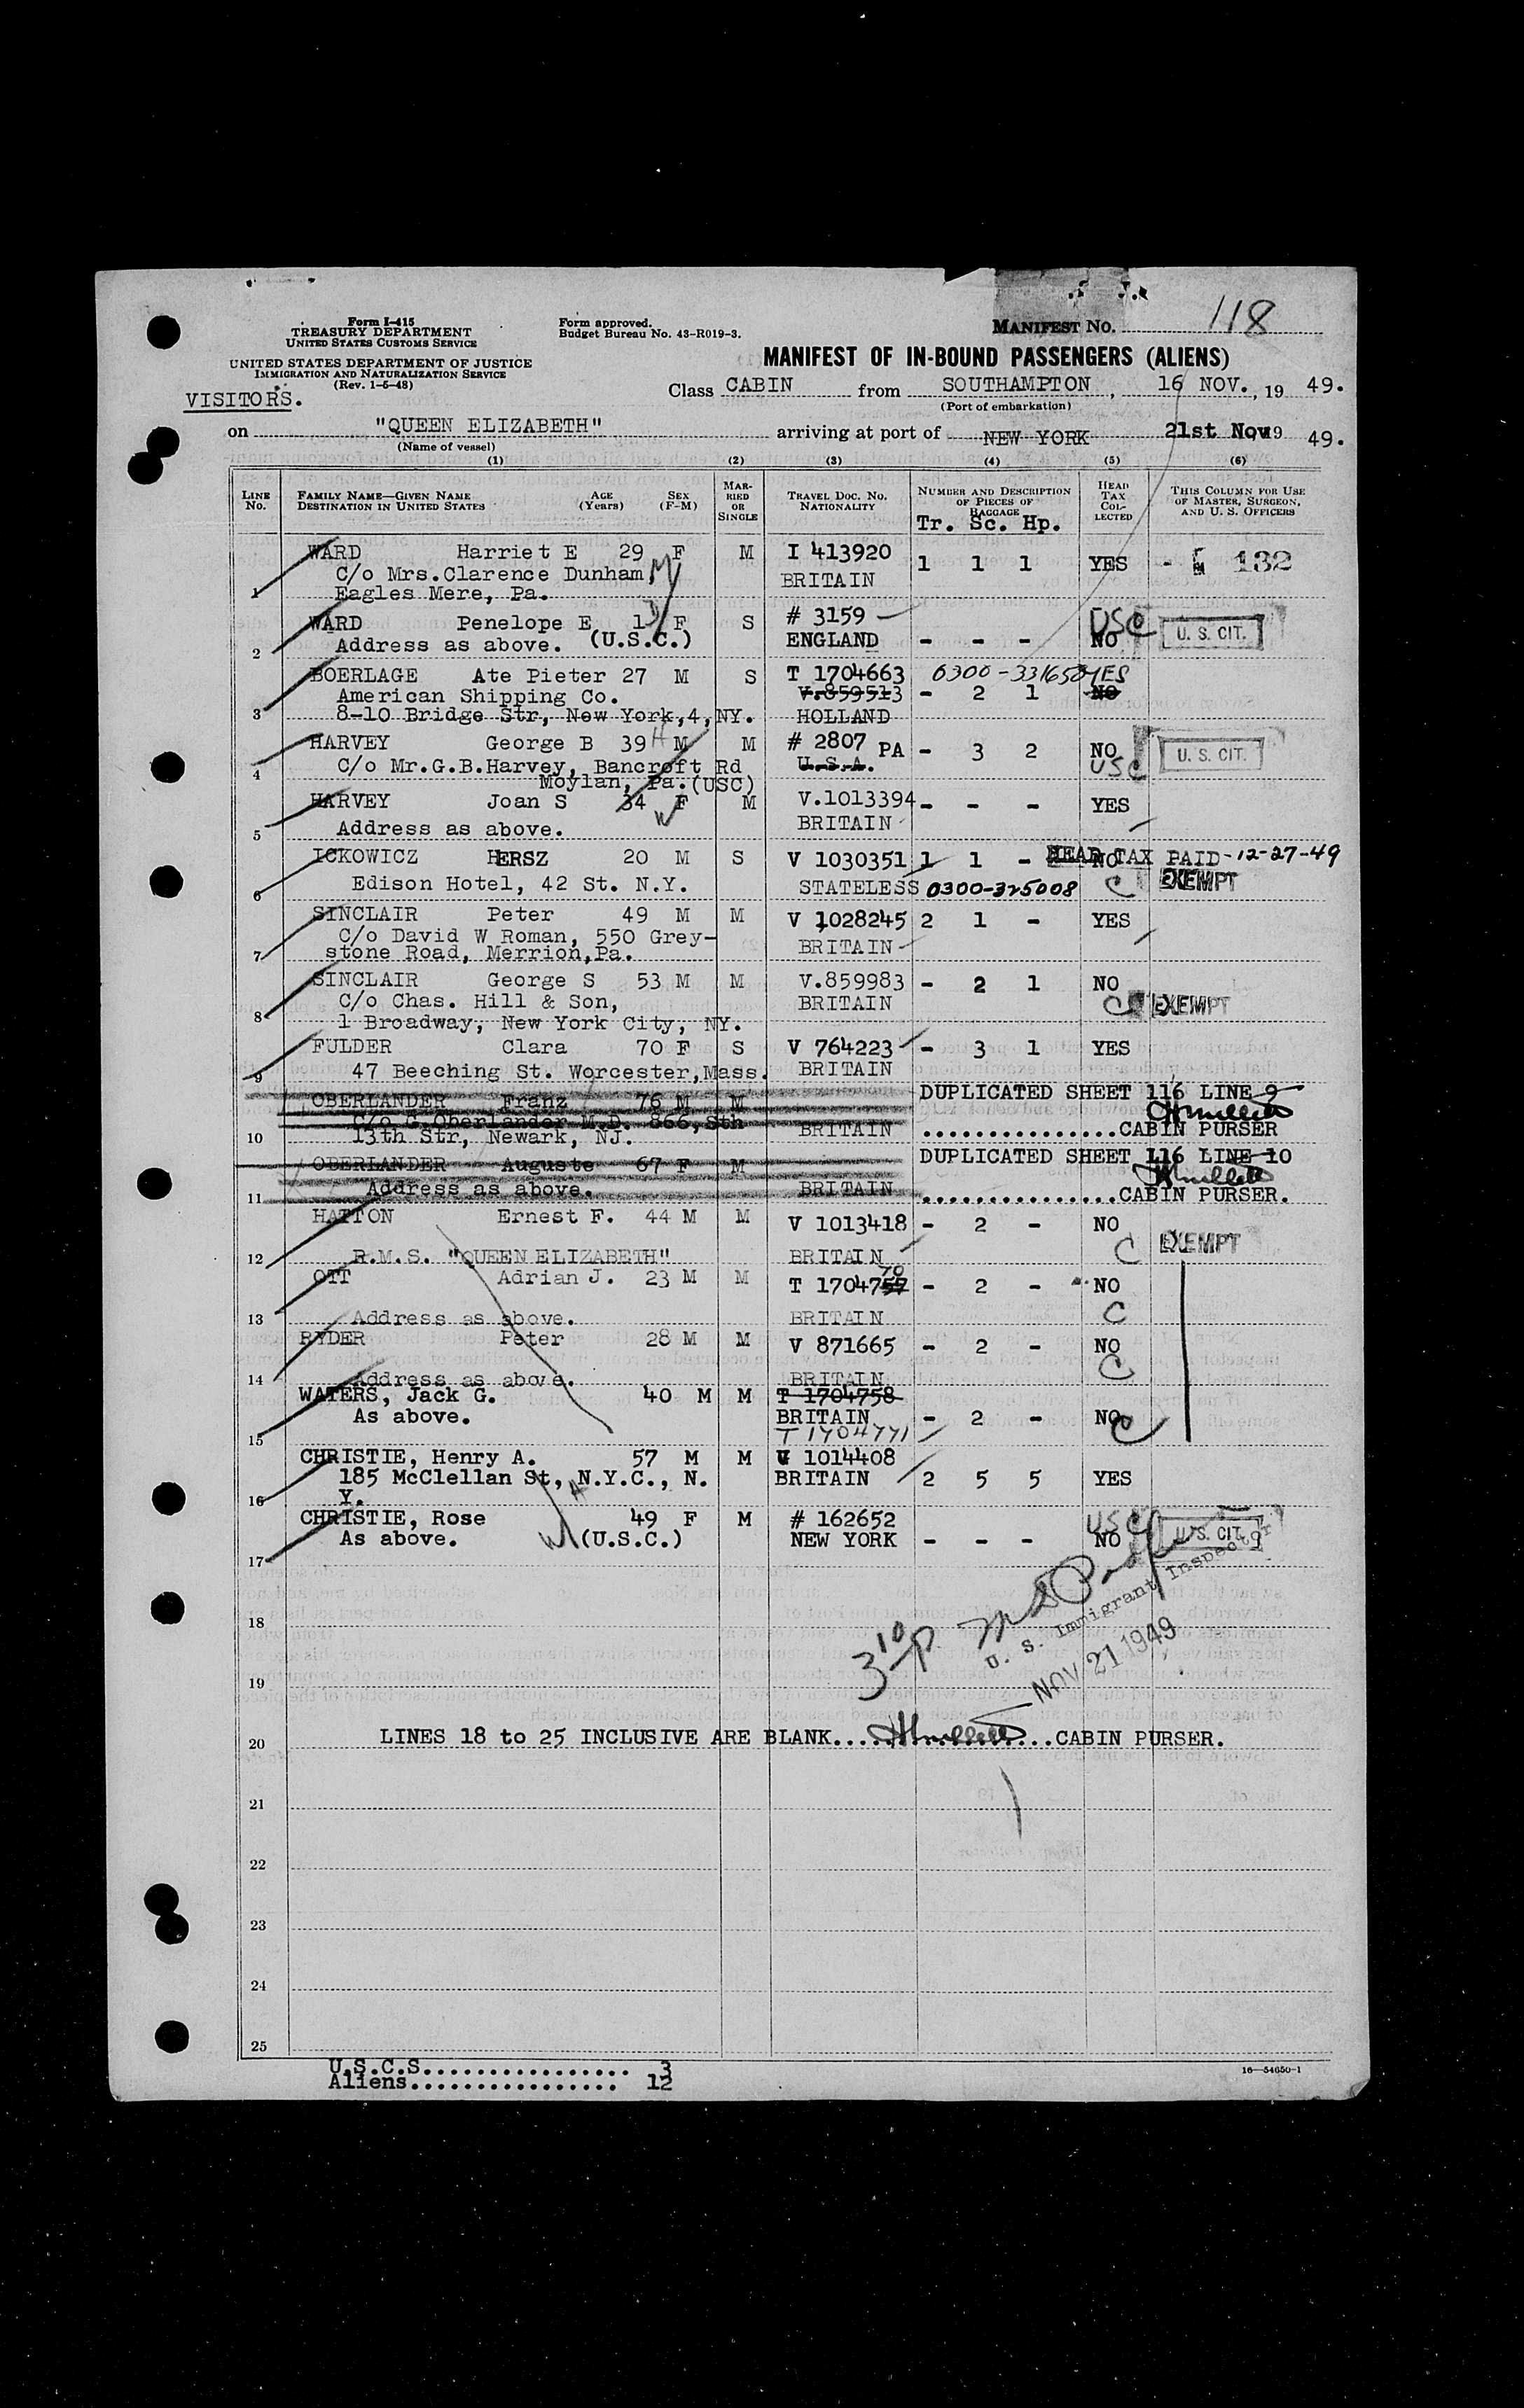 Form I-415
TREASURY DEPARTMENT
UNITED STATES CUSTOMS SERVICE
UNITED STATES DEPARTMENT OF JUSTICE
IMMIGRATION AND NATURALIZATION SERVICE
(Rev. 1-5-48)
VISITORS.
Form approved.
Budget Bureau No. 43-R019-3.
MANIFEST NO. 118
MANIFEST OF IN-BOUND PASSENGERS (ALIENS)
Class CABIN from SOUTHAMPTON, 16 NOV., 19 49.
(Port of embarkation)
on "QUEEN ELIZABETH" arriving at port of NEW YORK 21st Nov 19 49.
(Name of vessel)
(1) (2) (3) (4) (5) (6)
LINE No. FAMILY NAME—GIVEN NAME DESTINATION IN UNITED STATES AGE (Years) SEX (F-M) MARRIED OR SINGLE TRAVEL DOC. NO. NATIONALITY NUMBER AND DESCRIPTION OF PIECES OF BAGGAGE HEAD TAX COLLECTED THIS COLUMN FOR USE OF MASTER, SURGEON, AND U. S. OFFICERS
Tr. Sc. Hp.
WARD Harriet E 29 F M I 413920 1 1 1 YES 132
C/o Mrs.Clarence Dunham M BRITAIN
1 Eagles Mere, Pa.
WARD Penelope E 1 F S # 3159 - - - USC NO U. S. CIT.
2 Address as above. (U.S.C.) ENGLAND
BOERLAGE Ate Pieter 27 M S T 1704663 0300-331650 YES
American Shipping Co. V.859513 - 2 1 NO
3 8-10 Bridge Str, New York,4,NY. HOLLAND
HARVEY George B 39 H M M # 2807 PA - 3 2 NO U. S. CIT.
4 C/o Mr.G.B.Harvey, Bancroft Rd U.S.A. USC
Moylan, Pa.(USC)
HARVEY Joan S 34 F M V.1013394 - - - YES
5 Address as above. W BRITAIN
ICKOWICZ HERSZ 20 M S V 1030351 1 1 - NO HEAD TAX PAID-12-27-49
6 Edison Hotel, 42 St. N.Y. STATELESS 0300-325008 C EXEMPT
SINCLAIR Peter 49 M M V 1028245 2 1 - YES
C/o David W Roman, 550 Grey- BRITAIN
7 stone Road, Merrion,Pa.
SINCLAIR George S 53 M M V.859983 - 2 1 NO
C/o Chas. Hill & Son, BRITAIN C EXEMPT
8 1 Broadway, New York City, NY.
FULDER Clara 70 F S V 764223 - 3 1 YES
9 47 Beeching St. Worcester,Mass. BRITAIN
OBERLANDER Franz 76 M M DUPLICATED SHEET 116 LINE 9
C/o G.Oberlander M.D. 866,Sth
10 13th Str, Newark, NJ. BRITAIN ...............CABIN PURSER
OBERLANDER Auguste 67 F M DUPLICATED SHEET 116 LINE 10
11 Address as above. BRITAIN ...............CABIN PURSER.
HATTON Ernest F. 44 M M V 1013418 - 2 - NO
12 R.M.S. "QUEEN ELIZABETH" BRITAIN C EXEMPT
OTT Adrian J. 23 M M T 1704757 70 - 2 - NO
13 Address as above. BRITAIN C
RYDER Peter 28 M M V 871665 - 2 - NO
14 Address as above. BRITAIN C
WATERS, Jack G. 40 M M T 1704758
As above. BRITAIN - 2 - NO C
15 T 1704771
CHRISTIE, Henry A. 57 M M V 1014408
185 McClellan St, N.Y.C., N. BRITAIN 2 5 5 YES
16 Y. H
CHRISTIE, Rose 49 F M # 162652 USC
As above. W (U.S.C.) NEW YORK - - - NO U. S. CIT.
17
18
3 10 p.
U. S. Immigrant Inspector
NOV 21 1949
19
20 LINES 18 to 25 INCLUSIVE ARE BLANK..............CABIN PURSER.
21
22
23
24
25
U.S.C.S................ 3
Aliens................ 12
16—54650-1